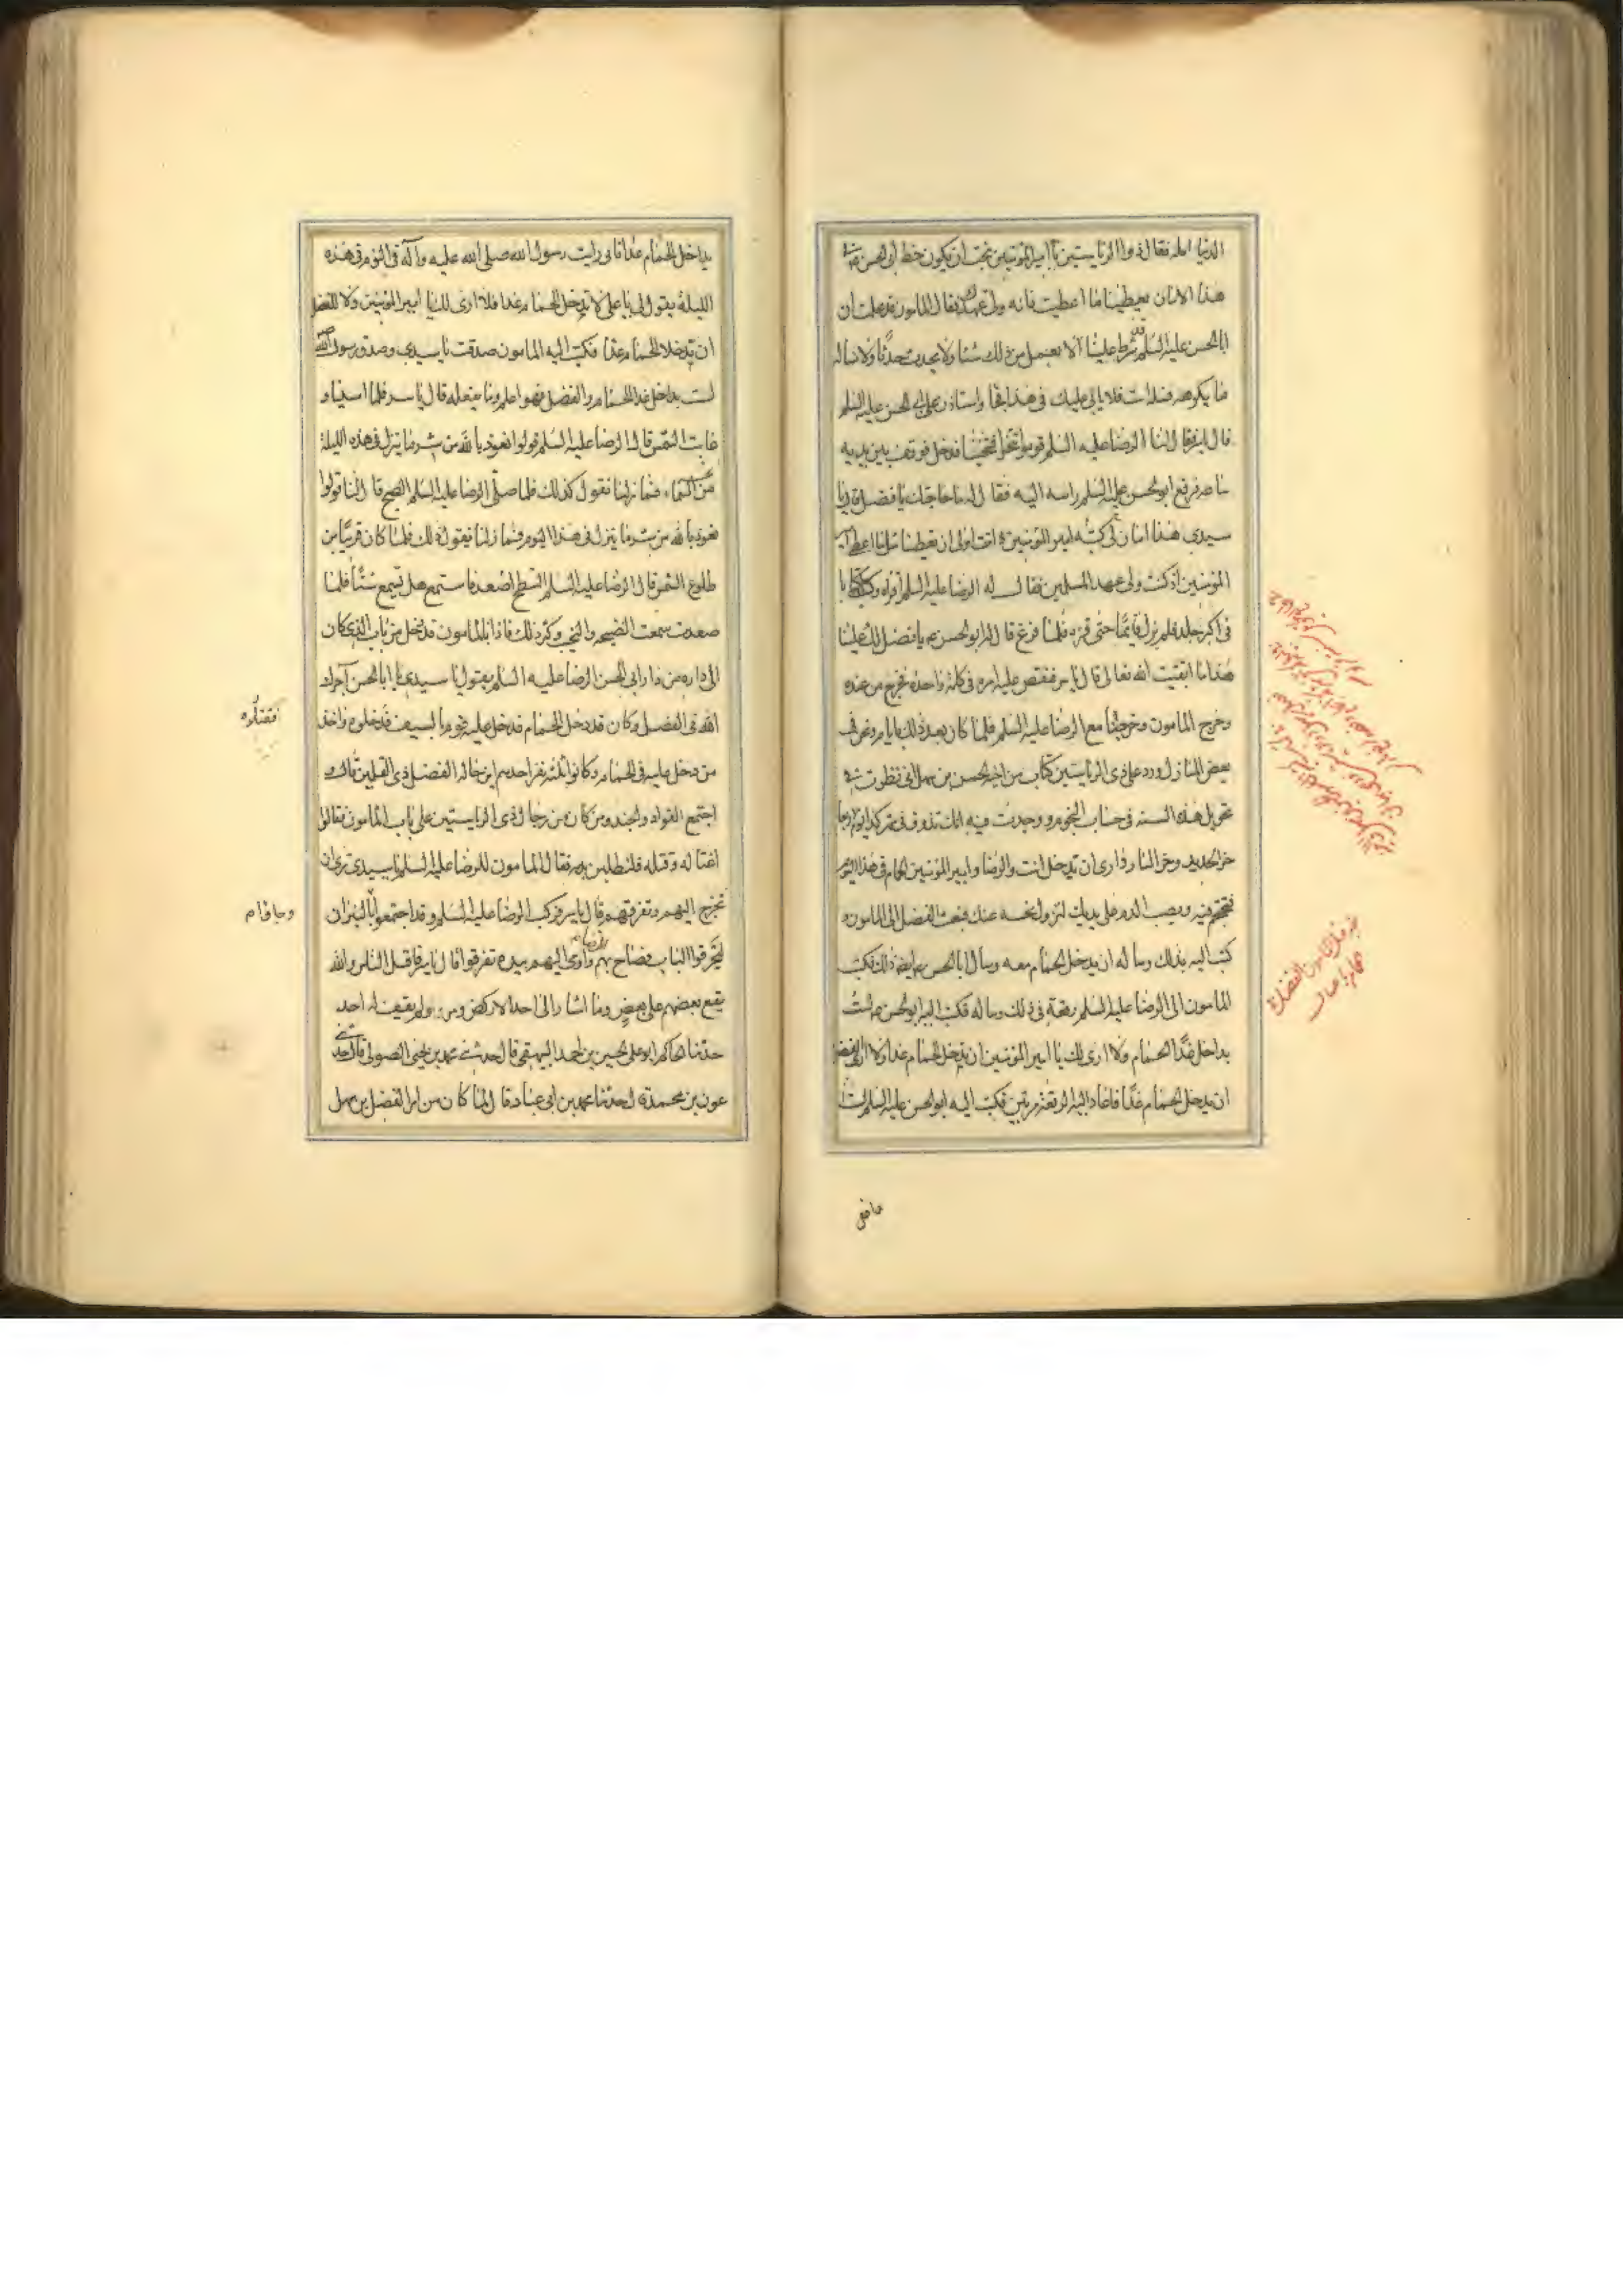 الدنيا امله فقال ذوا الرياستين يا امير المؤمنين نحب ان يكون خط ابي الحسن في
هذا الامان يعطينا ما اعطيت فانه ولي عهدك فقال المامون قد علمت ان
ابا الحسن عليه السلم قد شرط علينا الا يعمل من ذلك شيئا ولا يحدث حدثا ولا نساله
ما يكرهه فسله انت فلا يابى عليك في هذا فجا واستاذن على ابي الحسن عليه السلم
قال ياسر فقال لنا الرضا عليه السلم قوموا تنحوا فتنحينا فدخل فوقف بين يديه
ساعه فرفع ابو الحسن عليه السلم راسه اليه فقال له ما حاجتك يا فضل قال يا
سيدي هذا امان لي كتبه امير المؤمنين و انت اولى ان تعطينا مثل ما اعطى امير
المؤمنين اذ كنت ولي عهد المسلمين فقال له الرضا عليه السلم اقراه وكان كتابا
في اكبر جلد فلم يزل قائما حتى قراه فلما فرغ قال له ابو الحسن ع يا فضل لك علينا
هذا ما اتقيت الله تعالى قال ياسر فنقض عليه امره في كلمة واحده فخرج من عنده
وخرج المامون وخرجنا مع الرضا عليه السلم فلما كان بعد ذلك بايام ونحن في
بعض المنازل ورد على ذى الرياستين كتاب من اخيه الحسن بن سهل اني نظرت في
تحويل هذه السنه في حساب النجوم ووجدت فيه انك تذوق في شهر كذا يوم الاربعا
حر الحديد وحر النار وارى ان تدخل انت والرضا وامير المؤمنين الحمام في هذا اليوم
فتحتجم فيه ويصب الدم على يديك لتزول نحسه عنك فبعث الفضل الى المامون و
كتب اليه بذلك وساله ان يدخل الحمام معه وسال ابا الحسن ع ايضا ذلك فكتب
المامون الى الرضا عليه السلم رقعة في ذلك وساله فكتب اليه ابو الحسن ع لست
بداخل غدا الحمام ولا ارى لك يا امير المؤمنين ان تدخل الحمام غدا ولا ارى للفضل
ان يدخل الحمام غدا فاعاد اليه الرقعة مرتين فكتب اليه ابو الحسن عليه السلم لست
بداخل الحمام غدا فاني رايت رسول الله صلى الله عليه وآله في النوم في هذه
الليلة يقول لي يا علي لا تدخل الحمام غدا فلا ارى لك يا امير المؤمنين ولا للفضل
ان تدخلا الحمام غدا فكتب اليه المامون صدقت يا سيدي وصدق رسول الله
لست بداخل غدا الحمام والفضل فهو اعلم وما يفعله قال ياسر فلما امسينا و
غابت الشمس قال لنا الرضا عليه السلم قولوا نعوذ بالله من شر ما ينزل في هذه الليلة
من السماء فما زلنا نقول كذلك فلما صلى الرضا عليه السلم الصبح قال لنا قولوا
نعوذ بالله من شر ما ينزل في هذا اليوم فما زلنا نقول ذلك فلما كان قريبا من
طلوع الشمس قال الرضا عليه السلم السطح اصعد فاستمع هل تسمع شيئا فلما
صعدت سمعت الضجه والنحيب وكثر ذلك فاذا بالمامون قد دخل من باب الذي كان
الى داره من دار ابي الحسن الرضا عليه السلم يقول يا سيدي يا ابا الحسن آجرك
الله في الفضل وكان قد دخل الحمام فدخل عليه قوم بالسيوف فدخلوه واخذ
فقتلوه
من دخل عليه في الحمام وكانوا ثلثه نفر احدهم ابن خاله الفضل ذى القلمين قال و
اجتمع القواد والجند ومن كان من رجال ذى الرياستين على باب المامون فقالوا
اغتاله وقتله فلنطلبن بدمه فقال المامون للرضا عليه السلم يا سيدي ترى ان
تخرج اليهم وتفرقهم قال ياسر فركب الرضا عليه السلم وقد اجتمعوا بالنيران
ليحرقوا الباب فصاح بهم واومى اليهم بيده تفرقوا قال ياسر فاقبل الناس والله
يقع بعضهم على بعض وما اشار الى احد الا ركض ومر ولم يقف له احد
حدثنا الحاكم ابو علي الحسين بن احمد البيهقي قال حدثني محمد بن يحيى الصولي قال حدثني
عون بن محمد قال حدثنا محمد بن ابي عباد قال لما كان من امر الفضل بن سهل